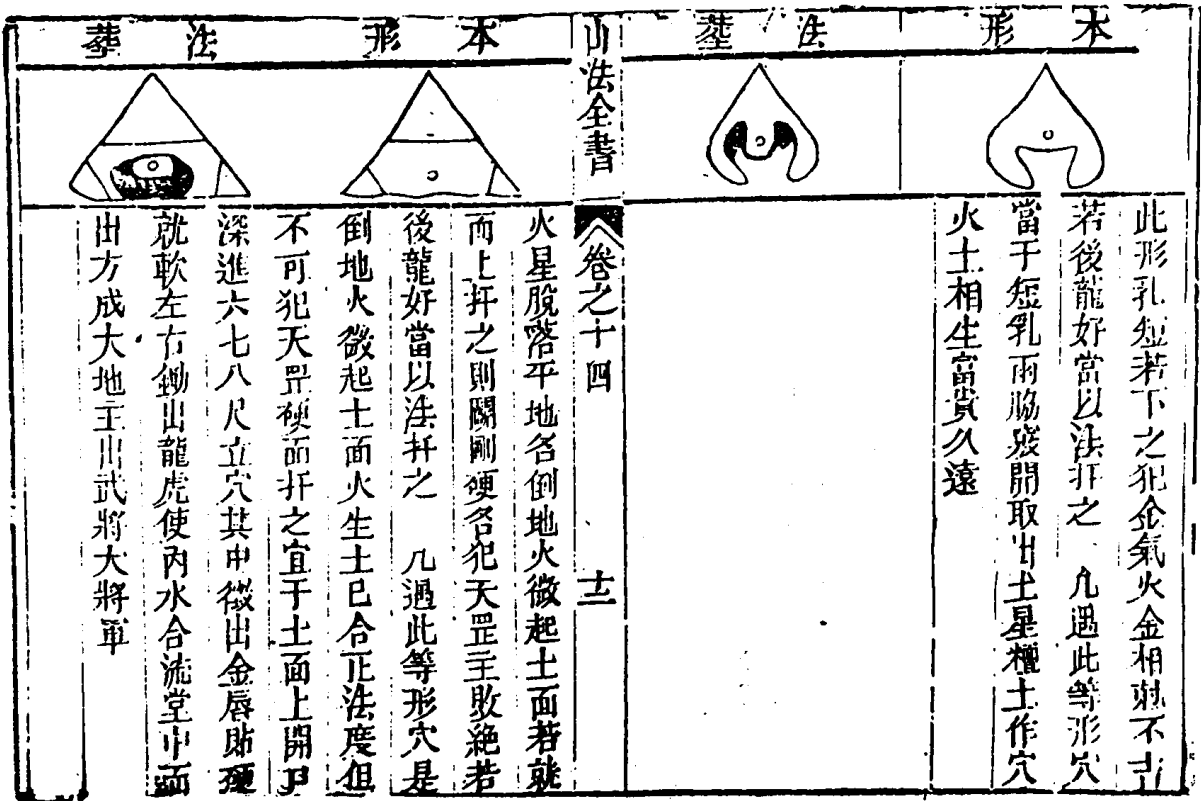 本形
法塟
此形乳短若下之犯金氣火金相尅不吉
若後龍好當以法扦之　凡遇此等形穴
當于短乳兩脇殘開取出土星檀土作穴
火土相生富貴久遠
山法全書
卷之十四
十二
本形
法塟
火星脫落平地名倒地火微起土面若就
而上扦之則鬭剛硬名犯天罡主敗絶若
後龍好當以法扦之　凡遇此等形穴是
倒地火微起土面火生土已合正法度但
不可犯天罡硬面扦之宜于土面上開
深進六七八尺立穴其中微出金唇貼硬
就軟左右鋤出龍虎使內水合流堂中而
出方成大地主出武將大將軍